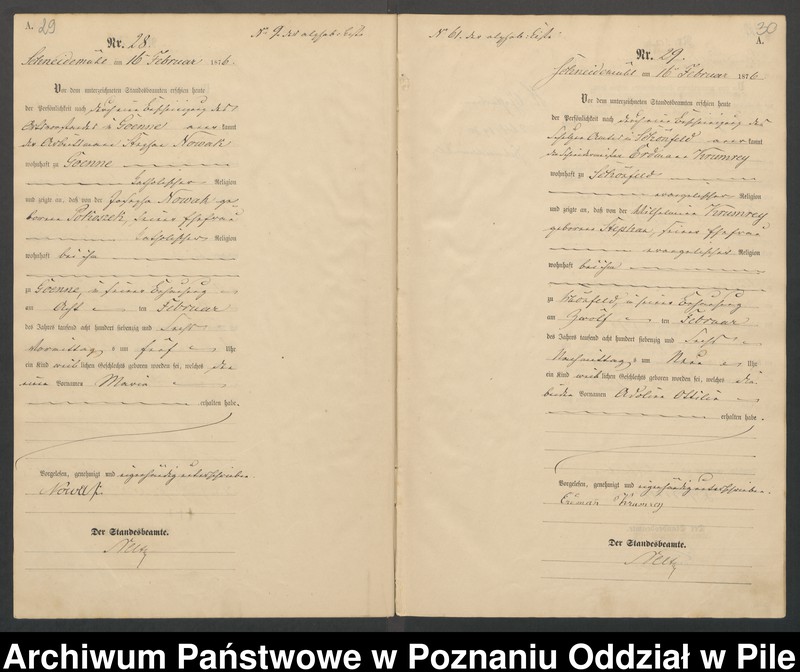 A. 29
Nr. 28.
No 9. des alphab: Liste
Schneidemühl am 16 Februar 1876.
Vor dem unterzeichneten Standesbeamten erschien heute
der Persönlichkeit nach durch eine Bescheinigung des
Goenne kannt
der Stephan Nowak
wohnhaft zu Goenne
katholischer Religion
und zeigte an, daß von der Josepha Nowak ge
borene Pokoszek, seine Ehefrau
katholischer Religion
wohnhaft bei ihm
zu Goenne, in seiner Behausung
am acht ten Februar
des Jahres tausend acht hundert siebenzig und sechs
Vormittag s um fünf Uhr
ein Kind weib lichen Geschlechts geboren worden sei, welches den
einen Vornamen Maria
erhalten habe.
Vorgelesen, genehmigt und eigenhändig unterschrieben.
Nowak
Der Standesbeamte.
30
A.
No 61. des alphab: Liste
Nr. 29.
Schneidemühl am 16 Februar 1876
Vor dem unterzeichneten Standesbeamten erschien heute
der Persönlichkeit nach durch eine Bescheinigung des
Schulzen Amtes in Schönfeld aner kannt
der Schneidermeister Erdmann Krumrey
wohnhaft zu Schönfeld
evangelischer Religion
und zeigte an, daß von der Wilhelmine Krumrey
geborene Stephan, seiner Ehefrau
evangelischer Religion
wohnhaft bei ihm
zu Schönfeld, in seiner Behausung
am zwölf ten Februar
des Jahres tausend acht hundert siebenzig und sechs
Nachmittag s um Neun Uhr
ein Kind weib lichen Geschlechts geboren worden sei, welches die
beiden Vornamen Ottilie
erhalten habe.
Vorgelesen, genehmigt und eigenhändig unterschrieben.
Erdmann Krumrey
Der Standesbeamte.
Archiwum Państwowe w Poznaniu Oddział w Pile